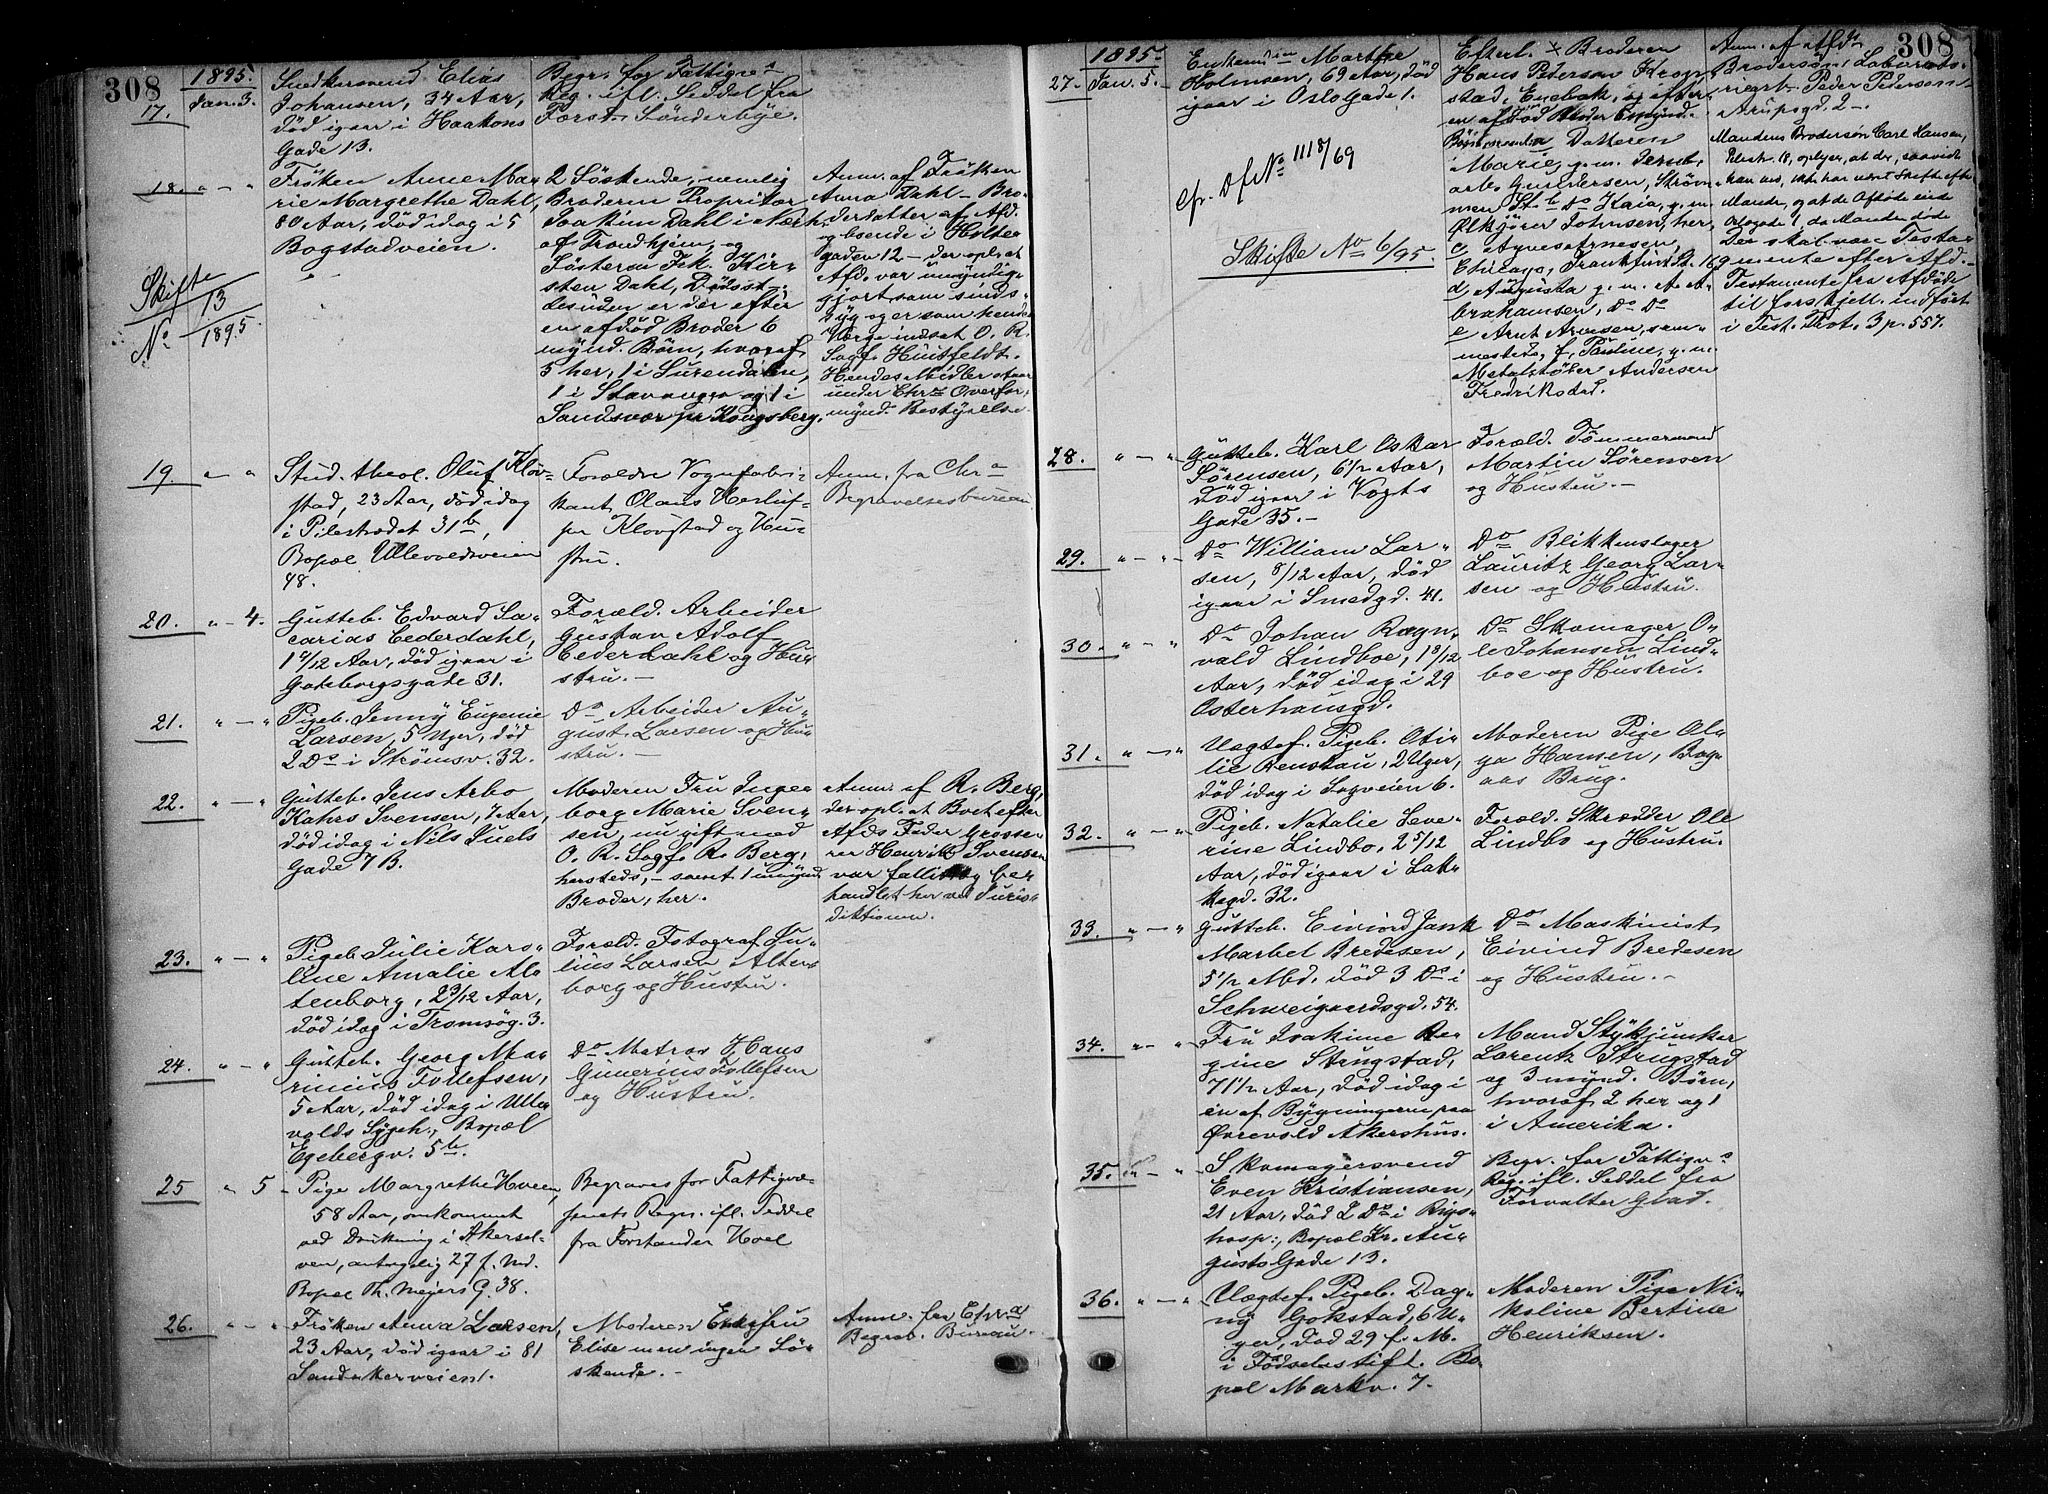 308
1895.
17. Jan. 3. Snedkersvend Elias
Johansen, 34 Aar,
død igaar i Haakons
Gade 13.
Begr. for Fattigv.s
Reg. ifl. Seddel fra
Forst. Sønderbye.
18. " — " Frøken Anne Ma-
rie Margrethe Dahl,
80 Aar, død idag i 5
Bogstadveien.
Skifte
No 13/1895.
2 Søskende, nemlig
Broderen Proprietær
Joakim Dahl i Nærh.
af Trondhjem, og
Søsteren Frk. Kir-
sten Dahl, Dødsst.
desuden er der efter
en afdød Broder 6
mynd. Børn, hvoraf
5 her, 1 i Surendalen,
1 i Stavanger og 1 i
Sandsvær pr Kongsberg.
Anm. af Frøken
Anna Dahl — Bro-
derdatter af Afd.
og boende i Holter
gaden 12 — der opl. at
Afd. var umyndig-
gjort som sinds-
syg og er som hendes
Værge indsat O. R.
Sagf. Huitfeldt.
Hendes Midler staar
under Chr.a Overfor-
mynd. Bestyrelse.
19. " — " Stud. theol. Oluf Klov-
stad, 23 Aar, død idag
i Pilestrædet 31b,
Bopæl Ullevoldsveien
48.
Forældre Vognfabri-
kant Olaus Herluf-
sen Klovstad og Hu-
stru.
Anm. fra Chr.a
Begravelsesbureau
20. " — 4. Gutteb. Edvard Sa-
carias Cederdahl,
1 9/12 Aar, død igaar i
Gøteborgsgade 31.
Foræld. Arbeider
Gustav Adolf
Cederdahl og Hu-
stru. —
21. " — " Pigeb. Jenny Eugenie
Larsen, 5 Uger, død
2 Do i Strømsv. 32.
Do Arbeider Au-
gust Larsen og Hu-
stru. —
22. " — " Gutteb. Jens Arbo
Kahrs Svensen, 7 Aar,
død idag i Nils Juels
Gade 7 B.
Moderen Fru Inge-
borg Marie Sven-
sen, nu gift med
O. R. Sagf. R. Berg,
hersteds, — samt 1 umynd.
Broder, her.
Anm. af R. Berg,
der opl. at Boet efter
Afdes Fader Grosse-
rer Henrik Svensen
var fallit og be-
handlet her ved Juris-
diktionen.
23. " — " Pigeb. Julie Karo-
line Amalie Al-
tenborg, 2 3/12 Aar,
død idag i Tromsøg. 3.
Foræld. Fotograf Ju-
lius Larsen Alten-
borg og Hustru.
24. " — " Gutteb. Georg Ma-
rinius Tollefsen,
5 Aar, død idag i Ulle-
volds Sygeh., Bopæl
Egebergv. 5b.
Do Matros Hans
Gunerius Tollefsen
og Hustru.
25 " 5 — Pige Margrethe Hveen,
58 Aar, omkommet
ved Drukning i Akersel-
ven, antagelig 27 f. Md.
Bopæl Th. Meyers G. 38.
Begraves for Fattigvæ-
senets Regn. ifl. Seddel
fra Forstander Hoel
26. " — " Frøken Anna Larsen,
23 Aar, død igaar i 81
Sandakerveien.
Moderen Enkefru
Elise men ingen Sø-
skende. —
Anm. fra Chr.a
Begrav. Bureau. —
308
1895.
27. Jan. 5. Enkemadm Marthe
Holmsen, 69 Aar, død
igaar i Oslogade 1.
cfr. Df No 1118/69
Skifte No 6/95.
Efterl. Broderen
Hans Pedersen Kron-
stad, Enebak, og efter
en afdød Broder 6 mynd.
Børn, Datteren
Marie, g. m. Jernb.
arb. Gundersen, Strøm-
men St. b Do Kaia, g. m.
Ølkjører Johnsen, her,
c, Agnes Arnesen,
Chicago, Frankfurt St. 169
d, Augusta g. m. A. A-
brahamsen, Do Do
e Arnt Arnesen, sam-
mesteds, f, Pauline, g. m.
Metalstøber Andersen
Fredrikstad.
Anm. af Afdes
Brodersøn Laborato-
riearb. Peder Pedersen
Arupsgd. 2 —.
Mandens Brodersøn Carl Hansen,
Pilestr. 18, oplyser, at der, saavidt
han ved, ikke har været Skifte efter
Manden, og at de Afdøde eiede
Oslogade 1, da Manden døde
Der skal være Testa-
mente efter Afd. —
Testamente fra Afdøde
til forskjell. indført
i Test. Prot. 3 p. 557.
28. " — " Gutteb. Karl Oskar
Sørensen, 6 1/2 Aar,
død igaar i Vogts
Gade 35. —
Foræld. Tømmermand
Martin Sørensen
og Hustru. —
29. " — " Do William Lar-
sen, 8/12 Aar, død
igaar i Smedgd. 41.
Do Blikkenslager
Lauritz Georg Lar-
sen og Hustru.
30. " — " Do Johan Ragn-
vald Lindboe, 1 8/12
Aar, død idag i 29
Osterhausgd.
Do Skomager O-
le Johansen Lind-
boe og Hustru.
31. " — " Uægtef. Pigeb. Oti-
lie Renskau, 2 Uger,
død idag i Sagveien 6.
Moderen Pige Ol-
ga Hansen, Bag-
aas Brug.
32. " — " Pigeb. Natalie Seve-
rine Lindbo, 2 5/12
Aar, død igaar i Lak-
kegd. 32.
Foræld. Skrædder Ole
Lindbo og Hustru.
33. " — " Gutteb. Einiord Jank
Marbel Bredesen,
5 1/2 Md. død 3 Do i
Schweigaardsgd. 54.
Do Maskinist
Eivind Bredesen
og Hustru. —
34. " — " Fru Joakime Re-
gine Strugstad,
71 1/2 Aar, død idag i
en af Bygningerne paa
Øvrevold Akershus.
Mand Stykjunker
Lorentz Strugstad
og 3 mynd. Børn,
hvoraf 2 her og 1
i Amerika.
35. " — " Skomagersvend
Even Kristiansen,
21 Aar, død 2 Do i Rigs-
hosp., Bopæl Kr. Au-
gusts Gade 13.
Begr. for Fattigv.s
Reg. ifl. Seddel fra
Forvalter Glad.
36. " — " Uægtef. Pigeb. Dag-
ny Gokstad, 6 U-
ger, død 29 f. M.
i Fødselsstift. Bo-
pæl Markv. 7.
Moderen Pige Ni-
koline Bertine
Henriksen.